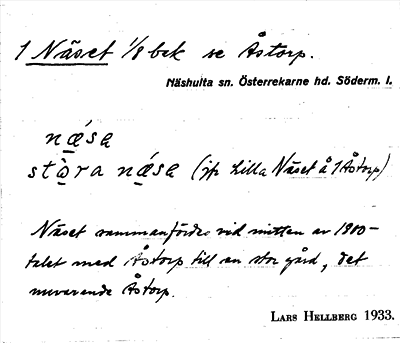 1 Näset 1/8 bek se Åstorp.
Näshulta sn. Österrekarne hd. Söderm. l.
næ´sa
stò̱ra næ´sa (jfr Lilla Näset å 1 Åstorp)
Näset sammanfördes vid mitten av 1900-
talet med Åstorp till en stor gård, det
nuvarande Åstorp.
LARS HELLBERG 1933.